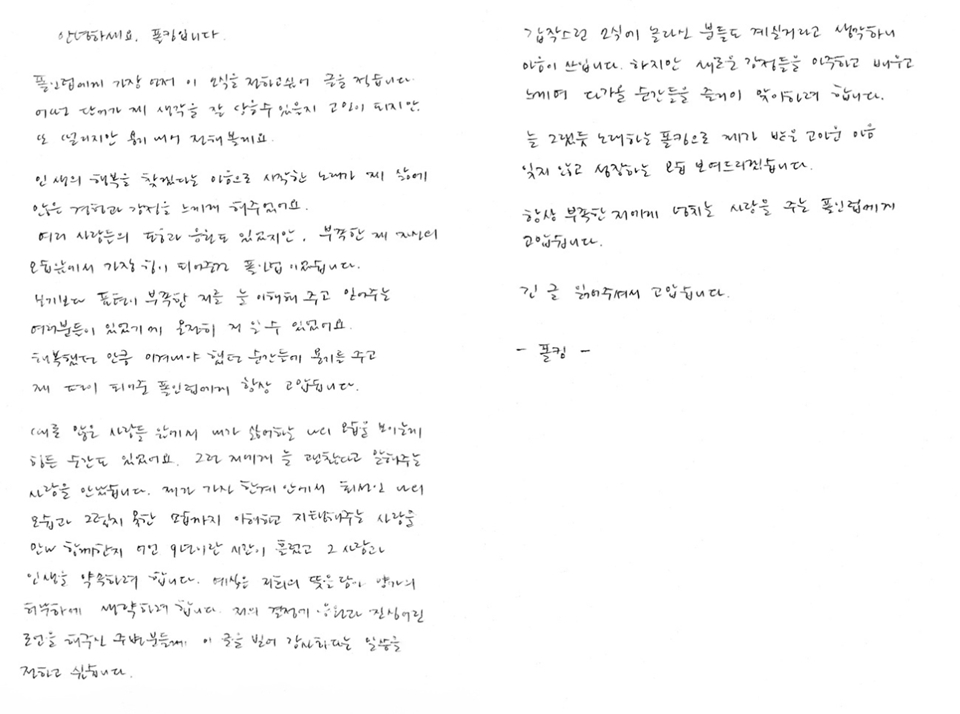 안녕하세요. 폴킴입니다.
폴인럽에게 가장 먼저 이 소식을 전하고싶어 글을 적습니다.
어떤 단어가 제 생각을 잘 담을수 있을지 고민이 되지만.
또 떨리지만 용기 내어 전해볼게요.
인생의 행복을 찾겠다는 마음으로 시작한 노래가 제 삶에
많은 경험과 감정을 느끼게 해주었어요.
여러 사람들의 도움과 응원도 있었지만, 부족한 제 자신의
모습앞에서 가장 힘이 되어준건 폴인럽 이었습니다.
보기보다 표현이 부족한 저를 늘 이해해 주고 믿어주는
여러분들이 있었기에 온전히 저 일 수 있었어요.
행복했던 만큼 이겨내야 했던 순간들에 용기를 주고
제 편이 되어준 폴인럽에게 항상 고맙습니다.
때론 많은 사람들 앞에서 내가 싫어하는 나의 모습을 보이는게
힘든 순간도 있었어요. 그런 저에게 늘 괜찮다고 말해주는
사람을 만났습니다. 제가 가진 한계 안에서 최선인 나의
모습과 그렇지 못한 모습까지 이해하고 지탱해주는 사람을
만나 함께한지 어언 9년이란 시간이 흘렀고 그 사람과
인생을 약속하려 합니다. 예식은 저희의 뜻을 담아 양가의
허락하에 생략하려 합니다. 저의 결정에 응원과 진심어린
조언을 해주신 주변분들께 이 글을 빌어 감사하다는 말씀을
전하고 싶습니다.
갑작스런 소식에 놀라신 분들도 계실거라고 생각하니
마음이 쓰입니다. 하지만 새로운 감정들을 마주하고 배우고
느끼며 다가올 순간들을 즐거이 맞이하려 합니다.
늘 그랬듯 노래하는 폴킴으로 제가 받은 고마운 마음
잊지 않고 성장하는 모습 보여드리겠습니다.
항상 부족한 저에게 넘치는 사랑을 주는 폴인럽에게
고맙습니다.
긴 글 읽어주셔서 고맙습니다.
- 폴킴 -